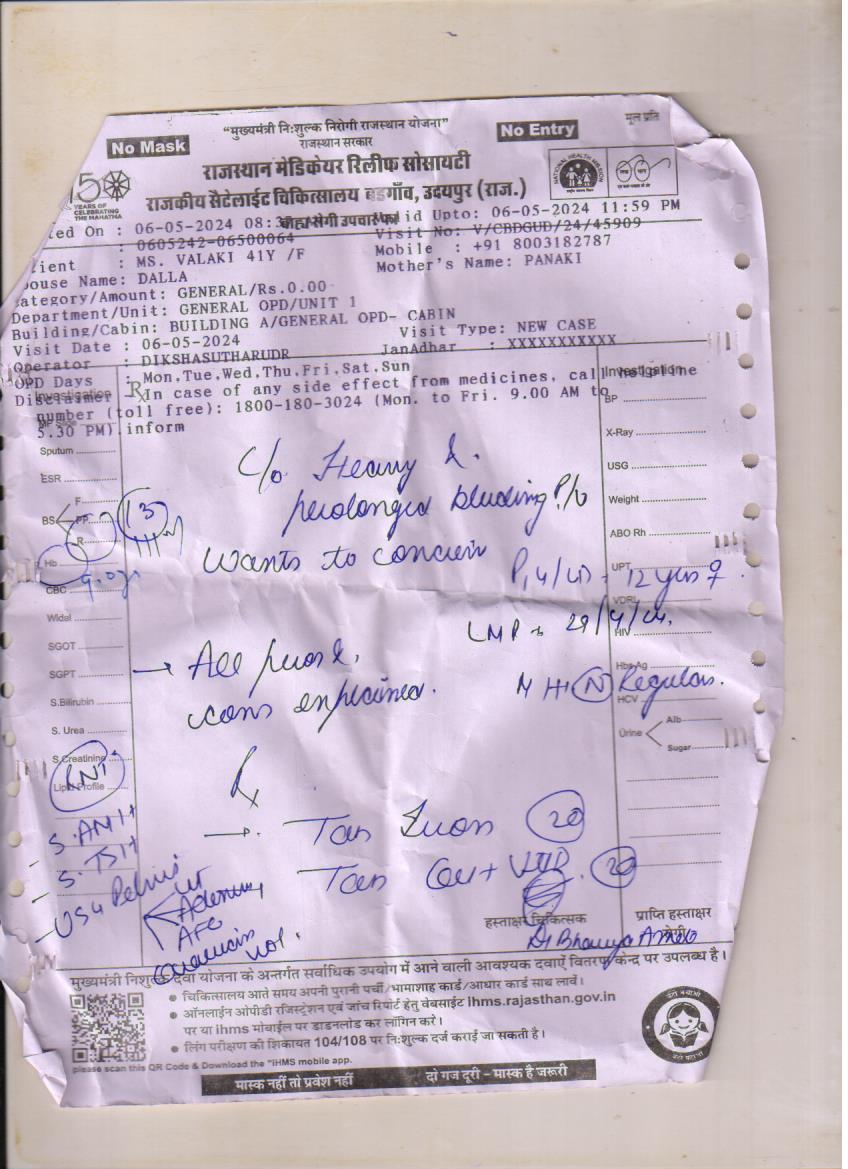 मूल प्रति
"मुख्यमंत्री निःशुल्क निरोगी राजस्थान योजना"
No Mask
No Entry
राजस्थान सरकार
राजस्थान मेडिकेयर रिलीफ सोसायटी
राजकीय सैटेलाईट चिकित्सालय बड़गाँव, उदयपुर (राज.)
NATIONAL HEALTH MISSION
YEARS OF
CELEBRATING
THE MAHATMA
ed On : 06-05-2024 08:3 id Upto: 06-05-2024 11:59 PM
: 0605242-06500064 Visit No: V/CBDGUD/24/45909
ient : MS. VALAKI 41Y /F Mobile : +91 8003182787
pouse Name: DALLA Mother's Name: PANAKI
ategory/Amount: GENERAL/Rs.0.00
Department/Unit: GENERAL OPD/UNIT 1
Building/Cabin: BUILDING A/GENERAL OPD- CABIN
Visit Date : 06-05-2024 Visit Type: NEW CASE
Operator : DIKSHASUTHARUDR JanAdhar : XXXXXXXXXXX
OPD Days : Mon,Tue,Wed,Thu,Fri,Sat,Sun
Disclaimer : In case of any side effect from medicines, call helpline
number (toll free): 1800-180-3024 (Mon. to Fri. 9.00 AM to
5.30 PM) inform
Investigation
Sputum
ESR
F
BS PP
R
Hb
CBC
Widal
SGOT
SGPT
S.Bilirubin
S. Urea
S.Creatinine
Lipid Profile
S. AMH
S. TSH
USG Pelvis
UT
AFC
Ovarian
vol.
C/o Heavy &
prolonged bleeding P/V
wants to concieve
LMP → 29/4/24.
M H (N) Regular.
→ All pros &
cons explained.
Rx
→ Tab 20
Tab 20
Investigation
BP
X-Ray
USG
Weight
ABO Rh
UPT
VDRL
HIV
Hbs Ag
HCV
Urine Alb
Sugar
हस्ताक्षर चिकित्सक
प्राप्ति हस्ताक्षर
रोगी
मुख्यमंत्री निशुल्क दवा योजना के अन्तर्गत सर्वाधिक उपयोग में आने वाली आवश्यक दवाऐं वितरण केन्द्र पर उपलब्ध है।
• चिकित्सालय आते समय अपनी पुरानी पर्ची/भामाशाह कार्ड/आधार कार्ड साथ लावें।
• ऑनलाईन ओपीडी रजिस्ट्रेशन एवं जांच रिपोर्ट हेतु वेबसाईट ihms.rajasthan.gov.in
पर या ihms मोबाईल पर डाउनलोड कर लॉगिन करे।
• लिंग परीक्षण की शिकायत 104/108 पर निःशुल्क दर्ज कराई जा सकती है।
please scan this QR Code & Download the "iHMS mobile app.
मास्क नहीं तो प्रवेश नहीं
दो गज दूरी – मास्क है जरूरी